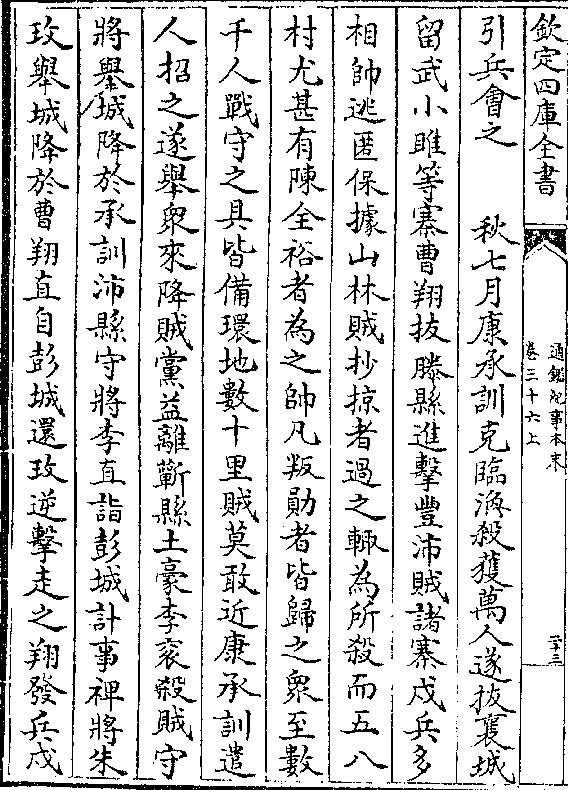 欽定四庫全書
通鑑紀事本末
卷三十六上
二十三
引兵會之　秋七月康承訓克臨渙殺獲萬人遂拔襄城
留武小睢等寨曹翔拔滕縣進擊豐沛賊諸寨戍兵多
相帥逃匿保據山林賊抄掠者過之輒為所殺而五八
村尤甚有陳全裕者為之帥凡叛勛者皆歸之衆至數
千人戰守之具皆備環地數十里賊莫敢近康承訓遣
人招之遂舉衆來降賊黨益離蘄縣土豪李衮殺賊守
將舉城降於承訓沛縣守將李直詣彭城計事裨將朱
玫舉城降於曹翔直自彭城還玫逆擊走之翔發兵戍